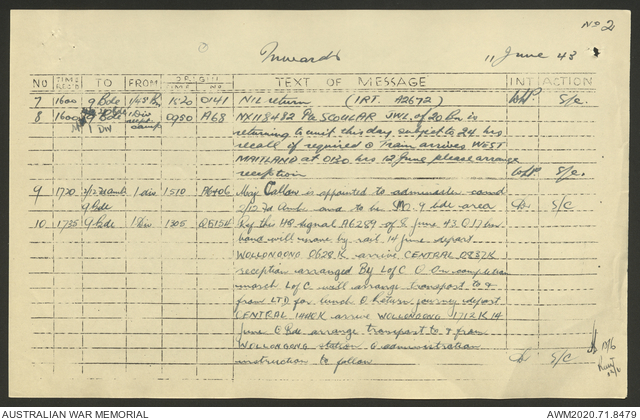 No 2
Inwards
11 June 43
NO TIME REC'D TO FROM ORIGIN TEXT OF MESSAGE INT ACTION
TIME No
7 1600 9 Bde 1/45 Bn 1520 0141 NIL return (IRT. A2672) S/c.
8 1600 9 Bde 1 Div 0950 A68 NX118482 Pte SCOULAR JWL. of 20 Bn is
1 DIV camp returning to unit this day subject to 24 hrs
recall if required o Train arrives WEST
MAITLAND at 0130 hrs 12 June please arrange
reception S/c.
9 1720 9 Bde 1 div 1510 A6406 Maj Callow is appointed to administer comd
2/12 Fd Amb and to be 9 bde area S/C
10 1735 9 Bde 1 Div 1305 Q5154 Ref this HQ signal A6289 of 8 June 43. O 17 bn
band will move by rail 14 June depart
WOLLONGONG 0628K arrive CENTRAL 0832K
reception arranged By L of C O On completion
march L of C will arrange transport to &
from LTD for lunch O Return journey depart
CENTRAL 1440K arrive WOLLONGONG 1712K 14
June O Bde arrange transport to & from
WOLLONGONG station O administration
instruction to follow S/C
AUSTRALIAN WAR MEMORIAL AWM2020.71.8479